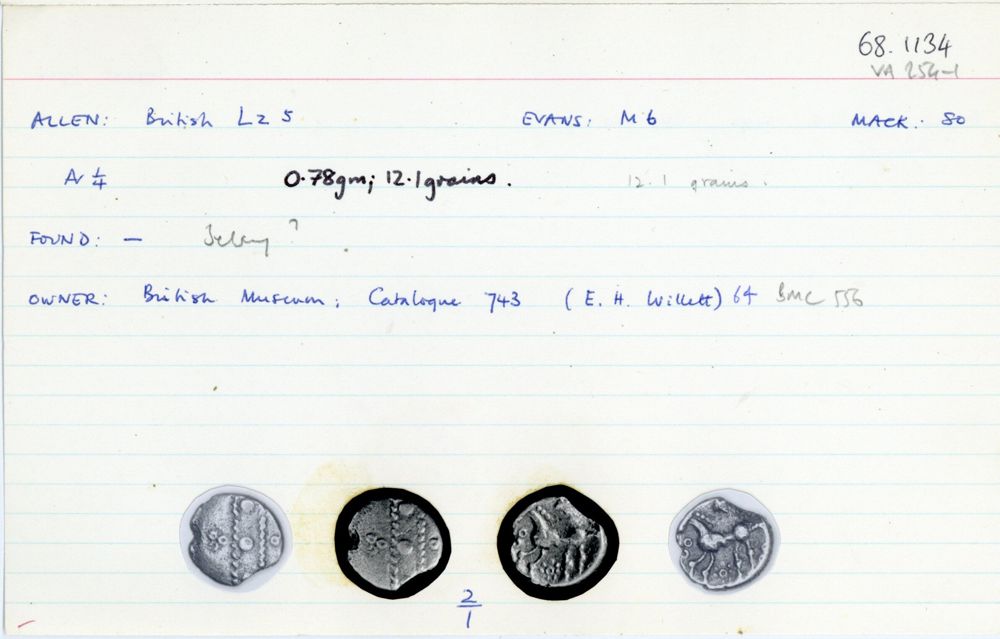 68.1134
VA 254-1
ALLEN: British Lz 5 EVANS: M 6 MACK: 80
¼ 0.78gm; 12.1grains. 12.1 grains.
FOUND: — Selsey ?
OWNER: British Museum; Catalogue 743 (E. H. Willett) 64 BMC 556
2/1